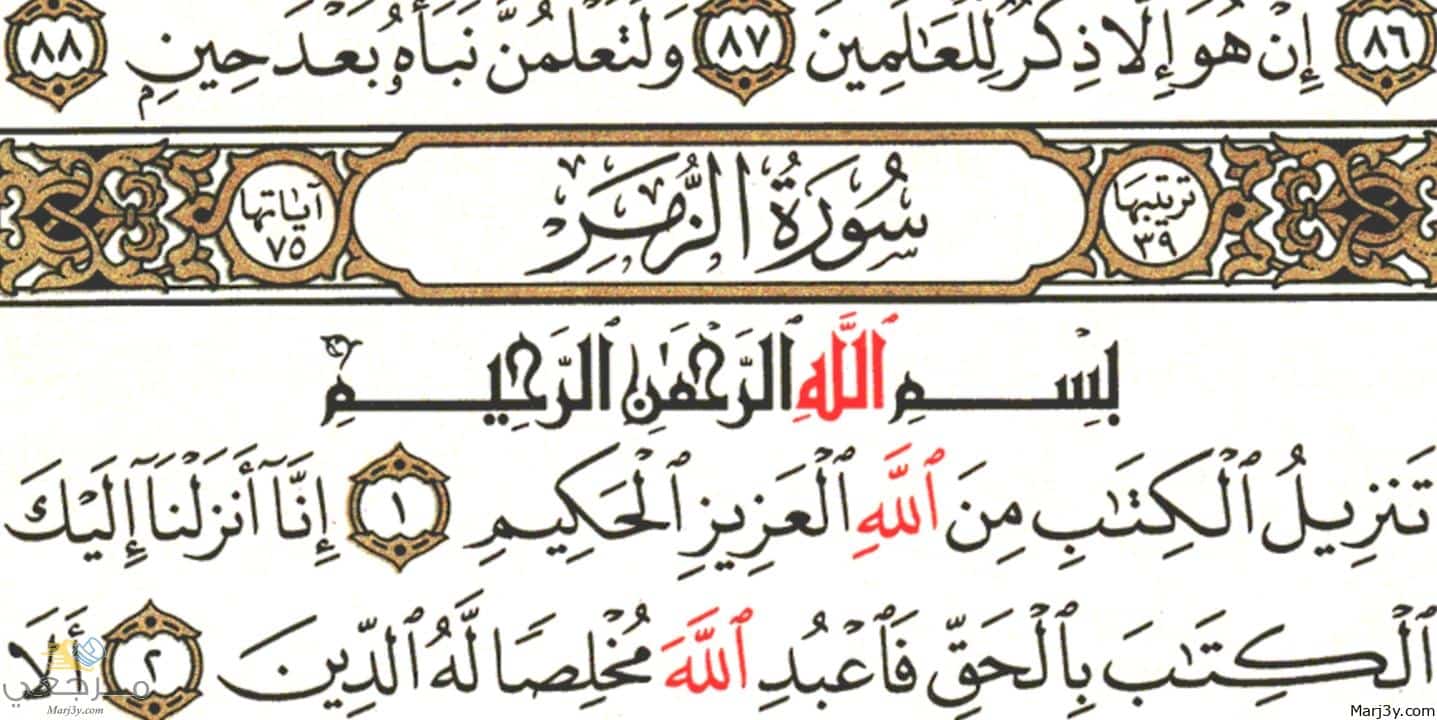 ٨٦ إِنْ هُوَ إِلَّا ذِكْرٌ لِّلْعَالَمِينَ ٨٧ وَلَتَعْلَمُنَّ نَبَأَهُۥ بَعْدَ حِينٍۭ ٨٨
ترتيبها ٣٩ سُورَةُ الزُّمَرِ آياتها ٧٥
بِسْمِ ٱللَّهِ ٱلرَّحْمَٰنِ ٱلرَّحِيمِ
تَنزِيلُ ٱلْكِتَٰبِ مِنَ ٱللَّهِ ٱلْعَزِيزِ ٱلْحَكِيمِ ١ إِنَّآ أَنزَلْنَآ إِلَيْكَ
ٱلْكِتَٰبَ بِٱلْحَقِّ فَٱعْبُدِ ٱللَّهَ مُخْلِصًا لَّهُ ٱلدِّينَ ٢ أَلَا
مرجعي
Marj3y.com
Marj3y.com